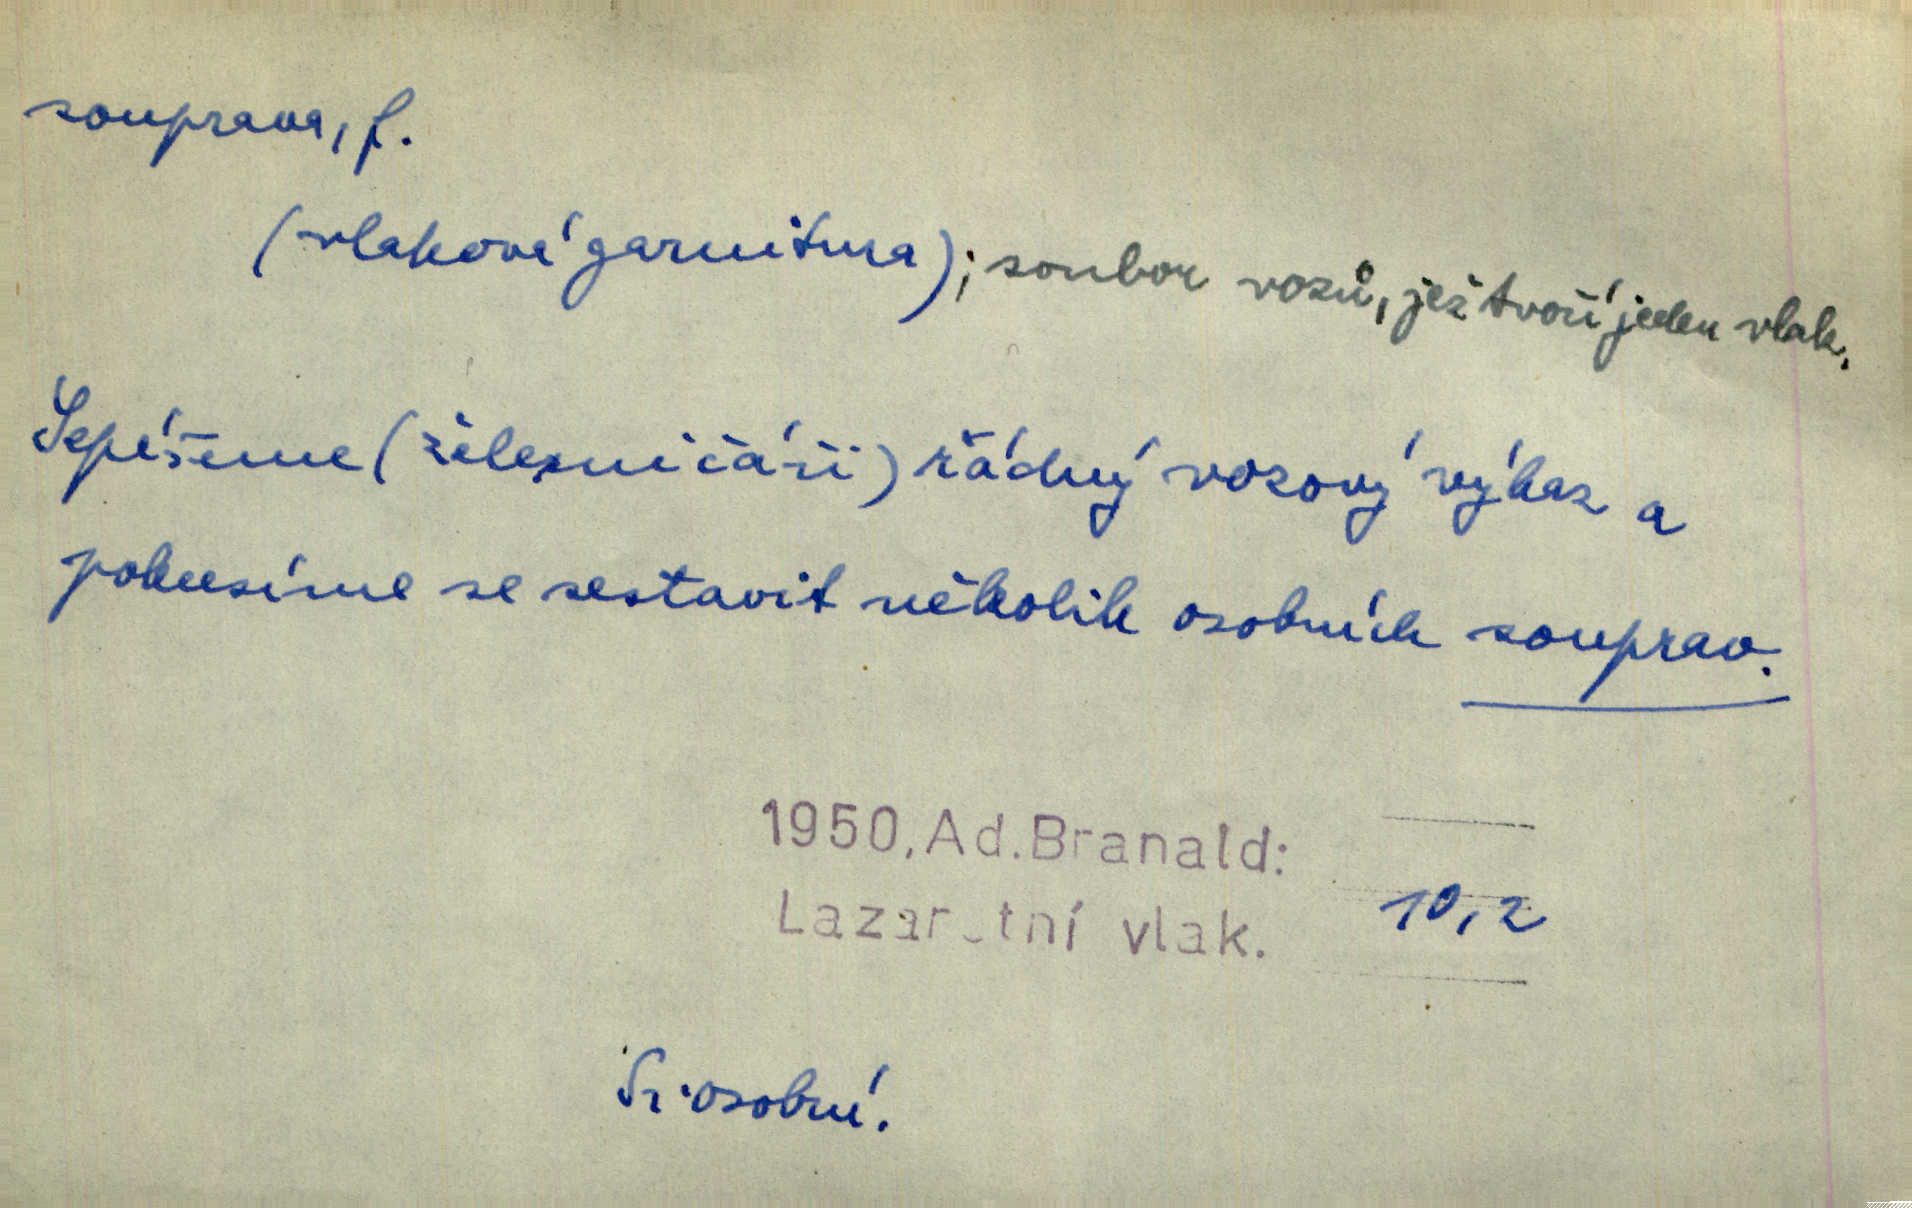 souprava, f.
(vlaková garnitura); soubor vozů, jež tvoří jeden vlak.
Sepíšeme (železničáři) řádný vozový výkaz a
pokusíme se sestavit několik osobních souprav.
1950, Ad. Branald:
Lazar_tní vlak.
10,2
Sr. osobní.